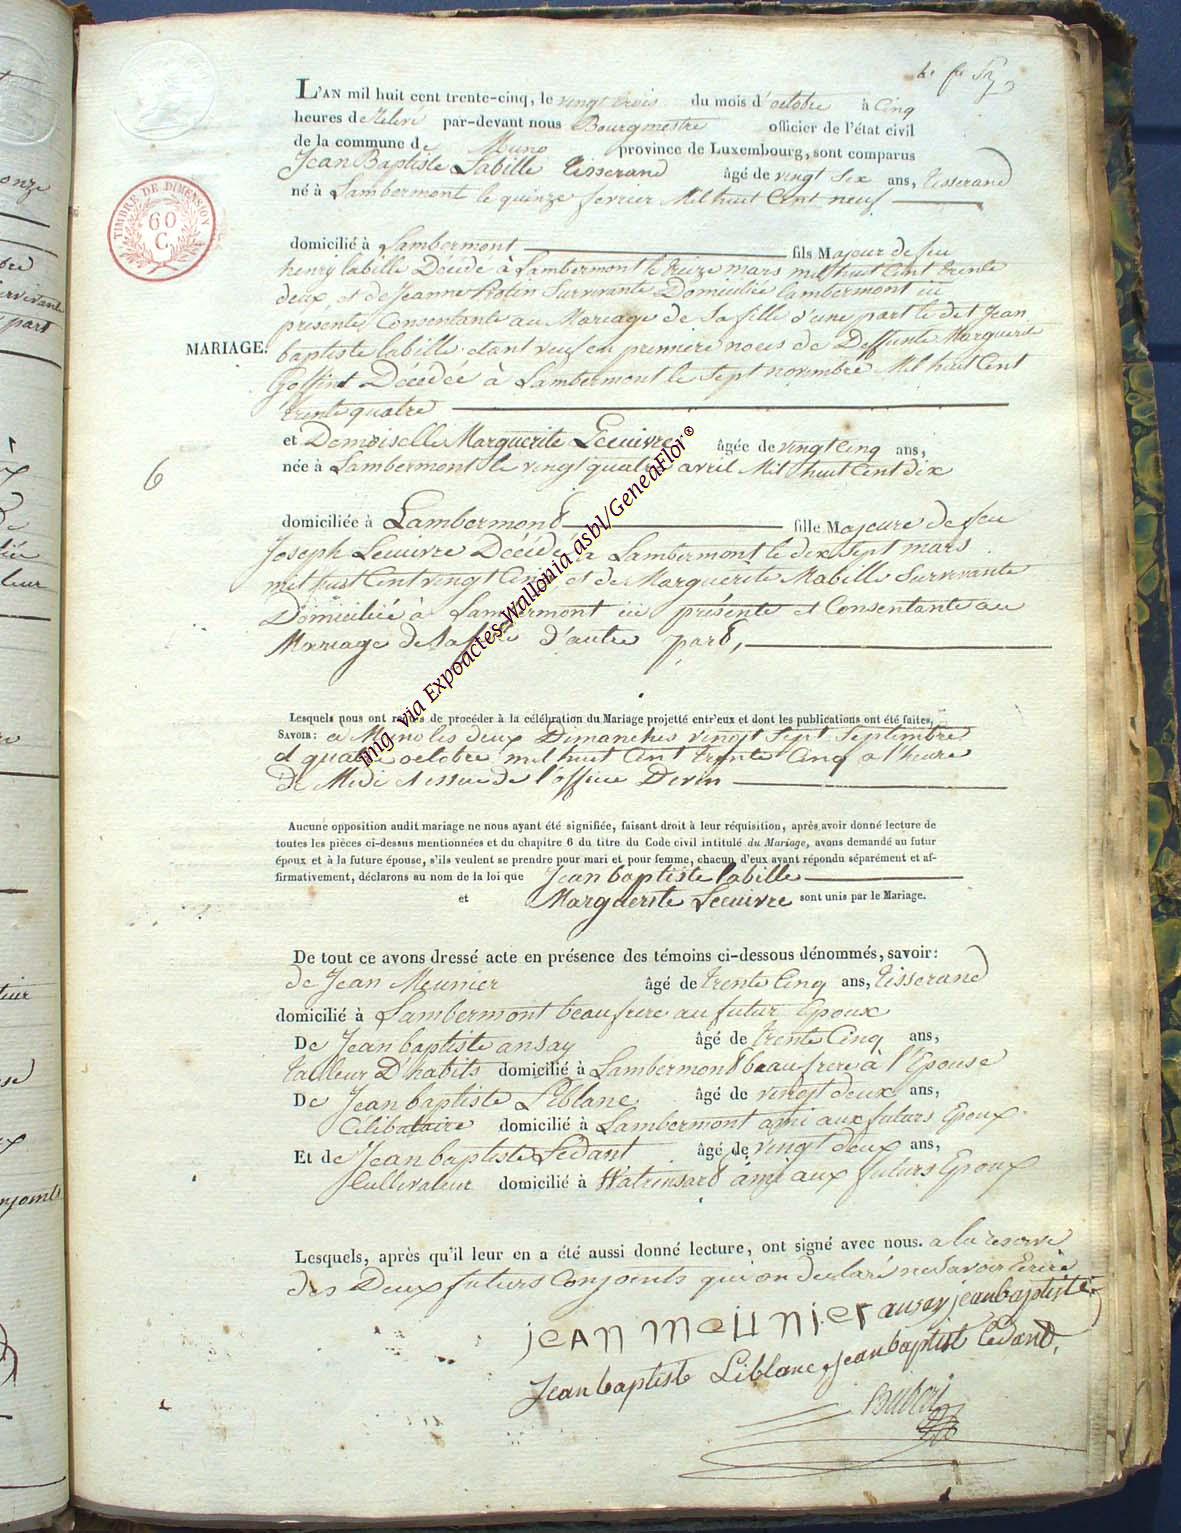 L'AN mil huit cent trente-cinq, le vingt trois du mois d'octobre à Cinq
heures de relevé par-devant nous Bourgmestre officier de l'état civil
de la commune de Muno province de Luxembourg, sont comparus
Jean Baptiste Labille tisserand âgé de vingt Six ans, tisserand
né à Lambermont le quinze fevrier Mil huit Cent neuf
TIMBRE DE DIMENSION
60
C.
domicilié à Lambermont fils Majeur de feu
henry labille Décédé à Lambermont le treize mars mil huit Cent trente
deux et de Jeanne Survivante Domiciliée lambermont ici
présente, Consentante au Mariage de Sa fille d'une part le dit Jean
MARIAGE.
baptiste labille étant veuf en première noces de Deffunte Marguerite
Goffint Décédée à Lambermont le Sept novembre Mil huit Cent
trente quatre
et Demoiselle Marguerite Lecuivre âgée de vingt Cinq ans,
6
née à Lambermont le vingt quatre avril Mil huit Cent dix
domiciliée à Lambermont fille Majeure de feu
Joseph Lecuivre Décédé à Lambermont le dix Sept mars
mil huit Cent vingt Cinq et de Marguerite Mabille Survivante
Domiciliée à Lambermont ici présente et Consentante au
Mariage de Sa fille d'autre part,
Lesquels nous ont requis de procéder à la célébration du Mariage projetté entr'eux et dont les publications ont été faites,
SAVOIR: à Muno les deux Dimanches vingt Sept Septembre
et quatre octobre mil huit Cent trente Cinq a l'heure
De Midi a issue de l'office Divin
Aucune opposition audit mariage ne nous ayant été signifiée, faisant droit à leur réquisition, après avoir donné lecture de
toutes les pièces ci-dessus mentionnées et du chapitre 6 du titre du Code civil intitulé du Mariage, avons demandé au futur
époux et à la future épouse, s'ils veulent se prendre pour mari et pour femme, chacun d'eux ayant répondu séparément et af-
firmativement, déclarons au nom de la loi que Jean baptiste labille
et Marguerite Lecuivre sont unis par le Mariage.
De tout ce avons dressé acte en présence des témoins ci-dessous dénommés, savoir:
de Jean Meunier âgé de trente Cinq ans, tisserand
domicilié à Lambermont beau frere au futur Epoux
De Jean baptiste ansay âgé de trente Cinq ans,
tailleur D'habits domicilié à Lambermont beau frere à l'Epouse
De Jean baptiste Liblanc âgé de vingt deux ans,
Célibataire domicilié à Lambermont ami aux futurs Epoux
Et de Jean baptiste Lédant âgé de vingt deux ans,
Cultivateur domicilié à Watrinsart ami aux futurs Epoux
Lesquels, après qu'il leur en a été aussi donné lecture, ont signé avec nous. a la reserve
des Deux futurs Conjoints qui on declaré ne Savoir Ecrire
jeAN meUNier ansay jean baptiste
Jean baptiste Liblanc, jean baptist Ledant,
img via Expoactes-Wallonia asbl/GeneaFlor®